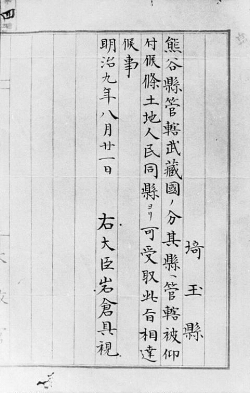 埼玉縣
熊谷縣管轄武藏國ノ分其縣ヘ管轄被仰
付候條土地人民同縣ヨリ可受取此旨相達
候事
明治九年八月廿一日
右大臣岩倉具視